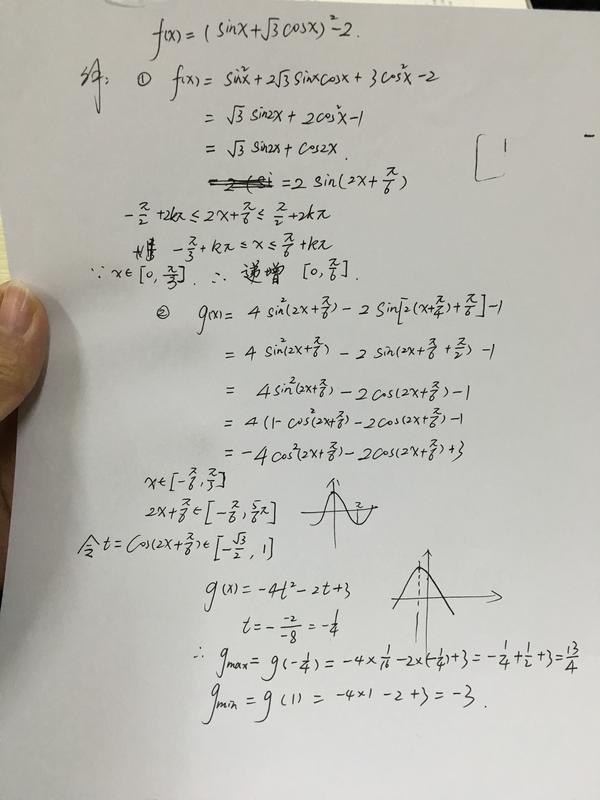 f(x) = (sinx+√3cosx)²-2.
解: ① f(x) = sin²x+2√3sinxcosx+3cos²x-2
= √3sin2x+2cos²x-1
= √3sin2x+cos2x.
=2sin(2x+π/6)
-π/2+2kπ≤2x+π/6≤π/2+2kπ
-π/3+kπ≤x≤π/6+kπ
∵x∈[0,π/3]. ∴递增[0,π/6].
② g(x) = 4sin²(2x+π/6)-2sin[2(x+π/4)+π/6]-1
= 4sin²(2x+π/6)-2sin(2x+π/6+π/2)-1
= 4sin²(2x+π/6)-2cos(2x+π/6)-1
= 4(1-cos²(2x+π/6)-2cos(2x+π/6)-1
= -4cos²(2x+π/6)-2cos(2x+π/6)+3
x∈[-π/6,π/3]
2x+π/6∈[-π/6,5/6π]
令t=cos(2x+π/6)∈[-√3/2,1]
g(x)=-4t²-2t+3
t=--2/-8=-1/4
∴gmax=g(-1/4)=-4×1/16-2×(-1/4)+3=-1/4+1/2+3=13/4
gmin=g(1)=-4×1-2+3=-3.